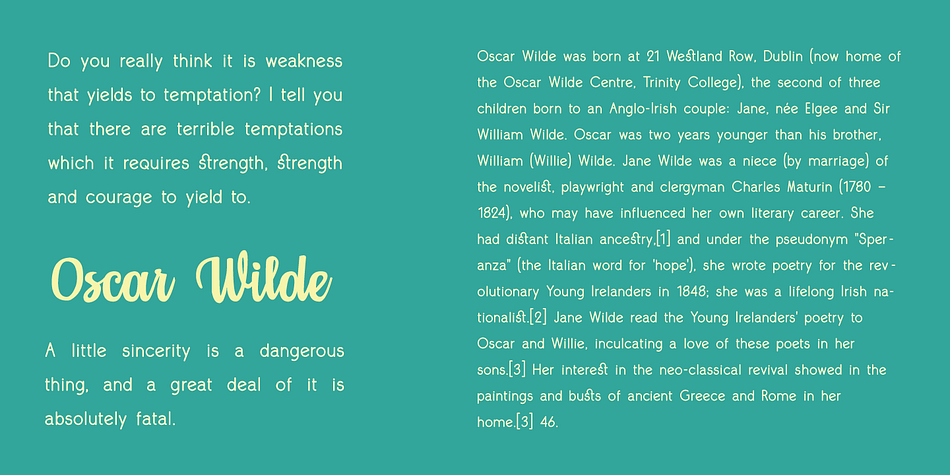 Do you really think it is weakness
that yields to temptation? I tell you
that there are terrible temptations
which it requires strength, strength
and courage to yield to.
Oscar Wilde
A little sincerity is a dangerous
thing, and a great deal of it is
absolutely fatal.
Oscar Wilde was born at 21 Westland Row, Dublin (now home of
the Oscar Wilde Centre, Trinity College), the second of three
children born to an Anglo-Irish couple: Jane, née Elgee and Sir
William Wilde. Oscar was two years younger than his brother,
William (Willie) Wilde. Jane Wilde was a niece (by marriage) of
the novelist, playwright and clergyman Charles Maturin (1780 –
1824), who may have influenced her own literary career. She
had distant Italian ancestry,[1] and under the pseudonym "Sper-
anza" (the Italian word for 'hope'), she wrote poetry for the rev-
olutionary Young Irelanders in 1848; she was a lifelong Irish na-
tionalist.[2] Jane Wilde read the Young Irelanders' poetry to
Oscar and Willie, inculcating a love of these poets in her
sons.[3] Her interest in the neo-classical revival showed in the
paintings and busts of ancient Greece and Rome in her
home.[3] 46.